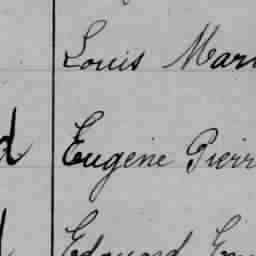 Louis Mari
d Eugène Pierr
Edouard